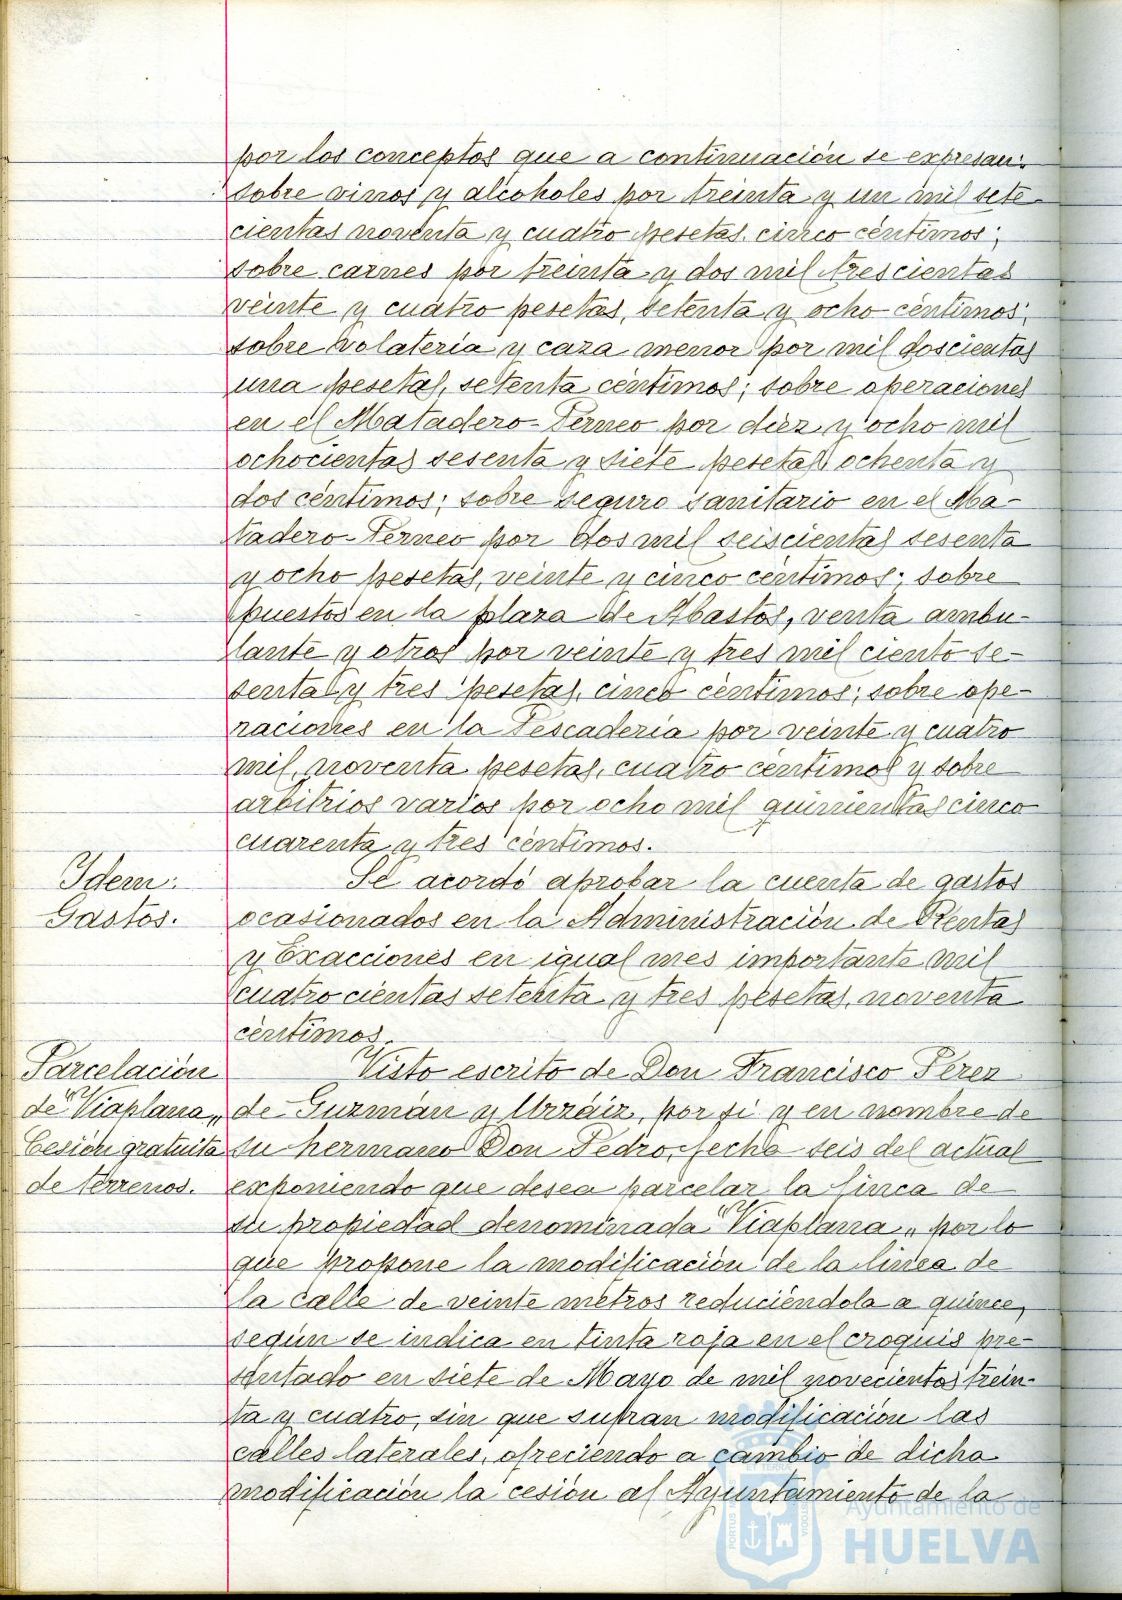 por los conceptos que a continuación se expresan:
sobre vinos y alcoholes por treinta y un mil sete-
cientas noventa y cuatro pesetas, cinco céntimos;
sobre carnes por treinta y dos mil trescientas
veinte y cuatro pesetas, setenta y ocho céntimos;
sobre volatería y caza menor por mil doscientas
una pesetas, setenta céntimos; sobre operaciones
en el Matadero-Perneo por diez y ocho mil
ochocientas sesenta y siete pesetas ochenta y
dos céntimos; sobre seguro sanitario en el Ma-
tadero-Perneo por dos mil seiscientas sesenta
y ocho pesetas, veinte y cinco céntimos; sobre
puestos en la plaza de Abastos, venta ambu-
lante y otros por veinte y tres mil ciento se-
senta y tres pesetas, cinco céntimos; sobre ope-
raciones en la Pescadería por veinte y cuatro
mil, noventa pesetas, cuatro céntimos y sobre
arbitrios varios por ocho mil quinientas cinco
cuarenta y tres céntimos.
Idem:
Gastos.
Se acordó aprobar la cuenta de gastos
ocasionados en la Administración de Rentas
y Exacciones en igual mes importante mil
cuatrocientas setenta y tres pesetas, noventa
céntimos.
Parcelación
de "Viaplana"
Cesión gratuita
de terrenos.
Visto escrito de Don Francisco Pérez
de Guzmán y Urzáiz, por sí y en nombre de
su hermano Don Pedro, fecha seis del actual
exponiendo que desea parcelar la finca de
su propiedad denominada "Viaplana" por lo
que propone la modificación de la línea de
la calle de veinte metros reduciéndola a quince,
según se indica en tinta roja en el croquis pre-
sentado en siete de Mayo de mil novecientos trein-
ta y cuatro, sin que sufran modificación las
calles laterales, ofreciendo a cambio de dicha
modificación la cesión al Ayuntamiento de la
Ayuntamiento de
HUELVA